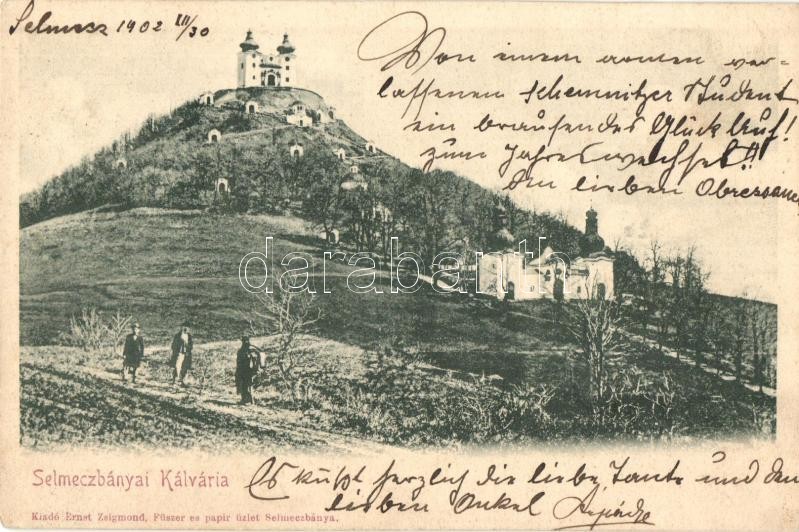 Selmecz 1902 III/30
Von einem armen ver-
lassenen Schemnitzer Student
ein brausendes Glück Auf!
zum Jahreswechsel!!
den lieben
darabanth
Selmeczbányai Kálvária
Es küßt herzlich die liebe Tante und den
lieben Onkel Árpád
Kiadó Ernst Zsigmond, Füszer es papir üzlet Selmeczbánya.